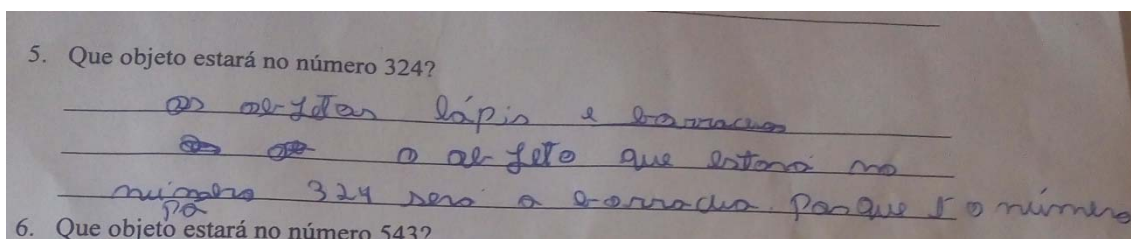 5. Que objeto estará no número 324?
os objetos lápis e borracha
o objeto que estará no
número 324 será a borracha. Porque é o número
pa
6. Que objeto estará no número 543?